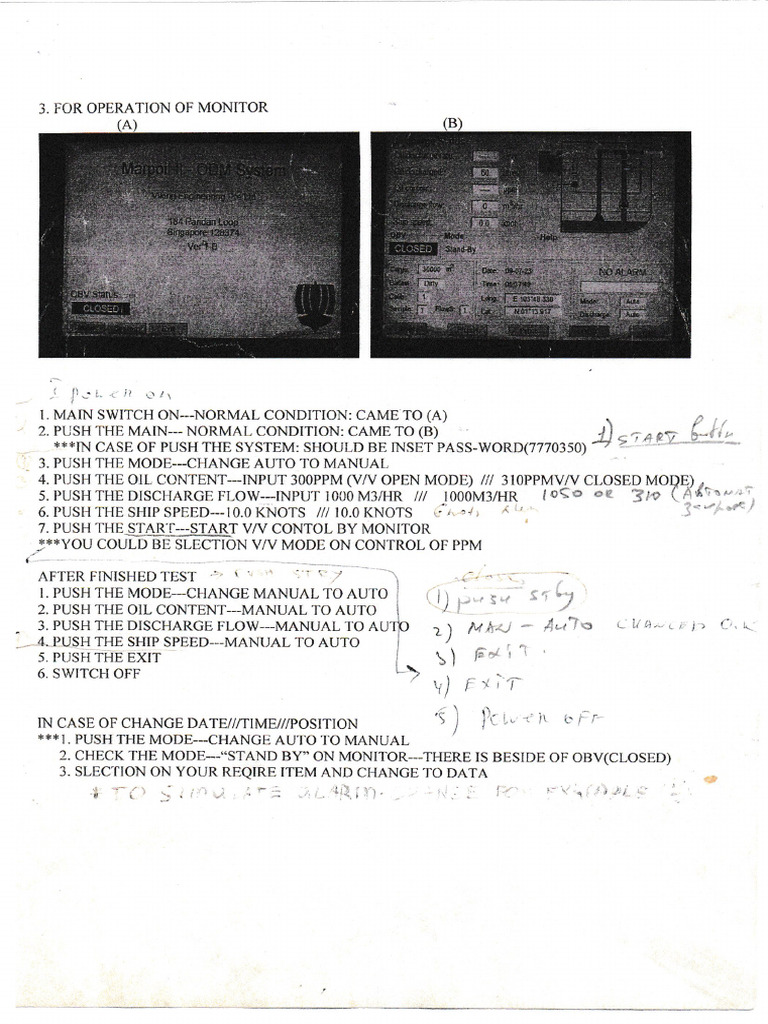 3. FOR OPERATION OF MONITOR
(A) (B)
Marpol ODM System
184 Pandan Loop
Singapore 128374
OBV Status
CLOSED
OBV Mode Help
CLOSED Stand-By
Cargo 30000 m³ Date: NO ALARM
Ballast Dirty Time:
1 Long. E 103°48.330 Mode: Auto
Sample 1 1 Lat. N 01°13.917 Discharge Auto
power on
1. MAIN SWITCH ON---NORMAL CONDITION: CAME TO (A)
2. PUSH THE MAIN--- NORMAL CONDITION: CAME TO (B)
1) START button
***IN CASE OF PUSH THE SYSTEM: SHOULD BE INSET PASS-WORD(7770350)
3. PUSH THE MODE---CHANGE AUTO TO MANUAL
4. PUSH THE OIL CONTENT---INPUT 300PPM (V/V OPEN MODE) /// 310PPMV/V CLOSED MODE)
5. PUSH THE DISCHARGE FLOW---INPUT 1000 M3/HR /// 1000M3/HR 1050 OR 310
6. PUSH THE SHIP SPEED---10.0 KNOTS /// 10.0 KNOTS
7. PUSH THE START---START V/V CONTOL BY MONITOR
***YOU COULD BE SLECTION V/V MODE ON CONTROL OF PPM
AFTER FINISHED TEST → PUSH STBY
1. PUSH THE MODE---CHANGE MANUAL TO AUTO
1) push stby
2. PUSH THE OIL CONTENT---MANUAL TO AUTO
3. PUSH THE DISCHARGE FLOW---MANUAL TO AUTO
2) MAN - AUTO
4. PUSH THE SHIP SPEED---MANUAL TO AUTO
3) EXIT.
5. PUSH THE EXIT
6. SWITCH OFF
4) EXIT
5) POWER OFF
IN CASE OF CHANGE DATE///TIME///POSITION
***1. PUSH THE MODE---CHANGE AUTO TO MANUAL
2. CHECK THE MODE---“STAND BY” ON MONITOR---THERE IS BESIDE OF OBV(CLOSED)
3. SLECTION ON YOUR REQIRE ITEM AND CHANGE TO DATA
* TO SIMULATE ALARM- CHANGE FOR EXAMPLE